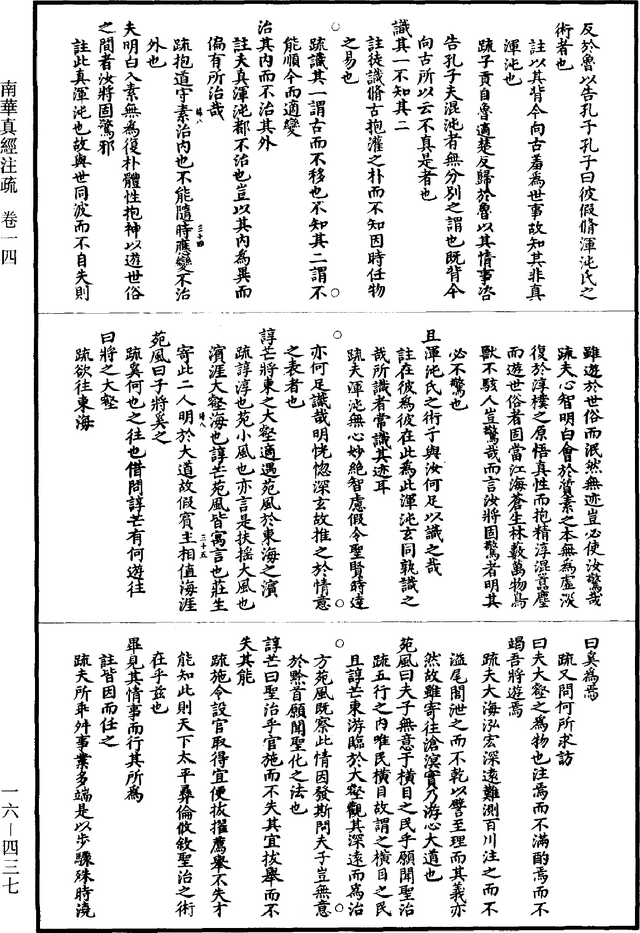 南華真經注疏　卷一四
反於魯以告孔子孔子曰彼假脩渾沌氏之
術者也
註以其背今向古羞為世事故知其非真
渾沌也
疏子貢自魯適楚反歸於魯以其情事咨
告孔子夫混沌者無分別之謂也既背今
向古所以云不真是者也
識其一不知其二
註徒識脩古抱灌之朴而不知因時任物
之易也
疏識其一謂古而不移也不知其二謂不
能順今而適變
治其內而不治其外
註夫真渾沌都不治也豈以其內為異而
偏有所治哉
疏抱道守素治內也不能隨時應變不治
外也
夫明白入素無為復朴體性抱神以遊世俗
之間者汝將固驚邪
註此真渾沌也故與世同波而不自失則
雖遊於世俗而泯然無迹豈必使汝驚哉
疏夫心智明白會於質素之本無為虛淡
復於淳樸之原悟真性而抱精淳混囂塵
而遊世俗者固當江海蒼生林藪萬物鳥
獸不駭人豈驚哉而言汝將固驚者明其
必不驚也
且渾沌氏之術予與汝何足以識之哉
註在彼為彼在此為此渾沌玄同孰識之
哉所識者常識其迹耳
疏夫渾沌無心妙絕智慮假令聖賢時達
亦何足識哉明恍惚深玄故推之於情意
之表者也
諄芒將東之大壑適遇苑風於東海之濱
疏諄淳也苑小風也亦言是扶搖大風也
濱涯大壑海也諄芒苑風皆寓言也莊生
寄此二人明於大道故假賓主相值海涯
苑風曰子將奚之
疏奚何也之往也借問諄芒有何遊往
曰將之大壑
疏欲往東海
曰奚為焉
疏又問何所求訪
曰夫大壑之為物也注焉而不滿酌焉而不
竭吾將遊焉
疏夫大海泓宏深遠難測百川注之而不
溢尾閭泄之而不乾以譬至理而其義亦
然故雖寄往滄溟實乃游心大道也
苑風曰夫子無意于橫目之民乎願聞聖治
疏五行之內唯民橫目故謂之橫目之民
且諄芒東游臨於大壑觀其深遠而為治
方苑風既察此情因發斯問夫子豈無意
於黔首願聞聖化之法也
諄芒曰聖治乎官施而不失其宜拔舉而不
失其能
疏施令設官取得宜便拔擢薦舉不失才
能如此則天下太平彝倫攸敘聖治之術
在乎茲也
畢見其情事而行其所為
註皆因而任之
疏夫所乖舛事業多端是以步驟殊時澆
一六—四三七